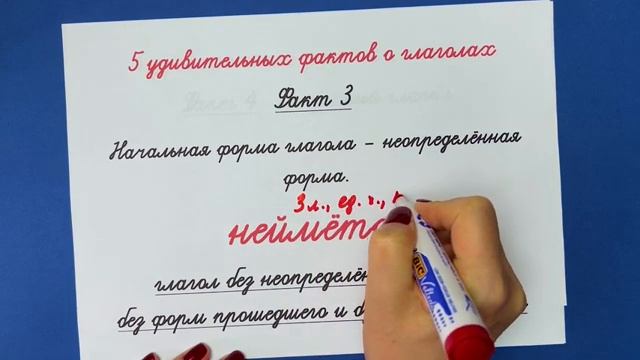 5 удивительных фактов о глаголах
Факт 3
Начальная форма глагола – неопределённая
форма.
3 л., ед. ч.,
неймётс
глагол без неопределён
без форм прошедшего и б
BIC